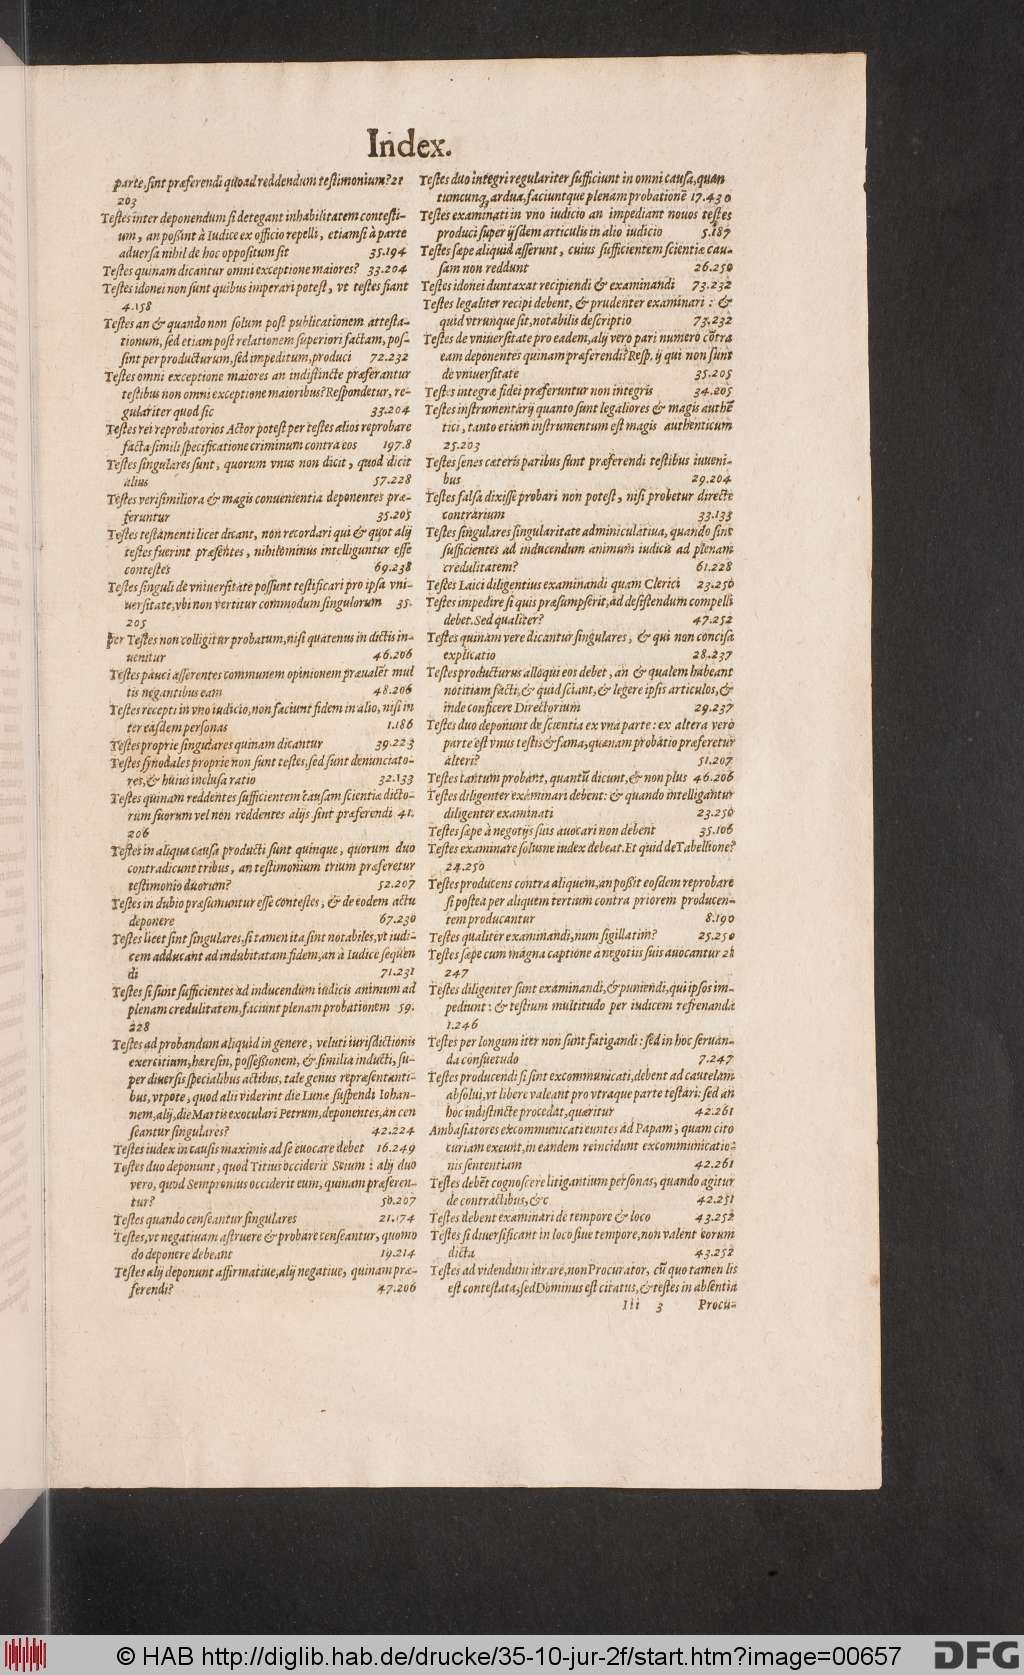 Index.
parte, sint præferendi quoad reddendum testimonium? 21
203
Testes inter deponendum si detegant inhabilitatem contesti-
um, an possint à Iudice ex officio repelli, etiamsi à parte
aduersa nihil de hoc oppositum sit 35.194
Testes quinam dicantur omni exceptione maiores? 33.204
Testes idonei non sunt quibus imperari potest, vt testes fiant
4.158
Testes an & quando non solum post publicationem attesta-
tionum, sed etiam post relationem superiori factam, pos-
sint per producturum, sed impeditum, produci 72.232
Testes omni exceptione maiores an indistincte præferantur
testibus non omni exceptione maioribus? Respondetur, re-
gulariter quod sic 33.204
Testes rei reprobatorios Actor potest per testes alios reprobare
facta simili specificatione criminum contra eos 197.8
Testes singulares sunt, quorum vnus non dicit, quod dicit
alius 57.228
Testes verisimiliora & magis conuenientia deponentes præ-
feruntur 35.205
Testes testamenti licet dicant, non recordari qui & quot alij
testes fuerint præsentes, nihilominus intelliguntur esse
contestes 69.238
Testes singuli de vniuersitate possunt testificari pro ipsa vni-
uersitate, vbi non vertitur commodum singulorum 35.
205
per Testes non colligitur probatum, nisi quatenus in dictis in-
uenitur 46.206
Testes pauci asserentes communem opinionem præualēt mul
tis negantibus eam 48.206
Testes recepti in vno iudicio, non faciunt fidem in alio, nisi in
ter easdem personas 1.186
Testes proprie singulares quinam dicantur 39.223
Testes synodales proprie non sunt testes, sed sunt denunciato-
res, & huius inclusa ratio 32.133
Testes quinam reddentes sufficientem causam scientiæ dicto-
rum suorum vel non reddentes alijs sint præferendi 41.
206
Testes in aliqua causa producti sunt quinque, quorum duo
contradicunt tribus, an testimonium trium præferetur
testimonio duorum? 52.207
Testes in dubio præsumuntur esse contestes, & de eodem actu
deponere 67.230
Testes licet sint singulares, si tamen ita sint notabiles, vt iudi-
cem adducant ad indubitatam fidem, an à Iudice sequen
di 71.231
Testes si sunt sufficientes ad inducendum iudicis animum ad
plenam credulitatem, faciunt plenam probationem 59.
228
Testes ad probandum aliquid in genere, veluti iurisdictionis
exercitium, hæresin, possessionem, & similia inducti, su-
per diuersis specialibus actibus, tale genus repræsentanti-
bus, vtpote, quod alii viderint die Lunæ suspendi Iohan-
nem, alij, die Martis exoculari Petrum, deponentes, an cen
seantur singulares? 42.224
Testes iudex in causis maximis ad se euocare debet 16.249
Testes duo deponunt, quod Titius occiderit Seium: alij duo
vero, quod Sempronius occiderit eum, quinam præferen-
tur? 50.207
Testes quando censeantur singulares 21.174
Testes, vt negatiuam astruere & probare censeantur, quomo
do deponere debeant 19.214
Testes alij deponunt affirmatiue, alij negatiue, quinam præ-
ferendi? 47.206
Testes duo integri regulariter sufficiunt in omni causa, quan
tumcunq, ardua, faciuntque plenam probationē 17.430
Testes examinati in vno iudicio an impediant nouos testes
produci super ijsdem articulis in alio iudicio 5.187
Testes sæpe aliquid asserunt, cuius sufficientem scientiæ cau-
sam non reddunt 26.250
Testes idonei duntaxat recipiendi & examinandi 73.232
Testes legaliter recipi debent, & prudenter examinari: &
quid vtrunque sit, notabilis descriptio 73.232
Testes de vniuersitate pro eadem, alij vero pari numero cōtra
eam deponentes quinam præferendi? Resp. ij qui non sunt
de vniuersitate 35.205
Testes integræ fidei præferuntur non integris 34.205
Testes instrumentarij quanto sunt legaliores & magis authē
tici, tanto etiam instrumentum est magis authenticum
25.203
Testes senes cæteris paribus sunt præferendi testibus iuueni-
bus 29.204
Testes falsa dixisse probari non potest, nisi probetur directe
contrarium 33.133
Testes singulares singularitate adminiculatiua, quando sint
sufficientes ad inducendum animum iudicis ad plenam
credulitatem? 61.228
Testes Laici diligentius examinandi quam Clerici 23.250
Testes impedire si quis præsumpserit, ad desistendum compelli
debet. Sed qualiter? 47.252
Testes quinam vere dicantur singulares, & qui non concisa
explicatio 28.237
Testes producturus alloqui eos debet, an & qualem habeant
notitiam facti, & quid sciant, & legere ipsis articulos, &
inde conficere Directorium 29.237
Testes duo deponunt de scientia ex vna parte: ex altera vero
parte est vnus testis & fama, quænam probatio præferetur
alteri? 51.207
Testes tantum probant, quantū dicunt, & non plus 46.206
Testes diligenter examinari debent: & quando intelligantur
diligenter examinati 23.250
Testes sæpe à negotijs suis auocari non debent 35.106
Testes examinare solusne iudex debeat. Et quid de Tabellione?
24.250
Testes producens contra aliquem, an possit eosdem reprobare
si postea per aliquem tertium contra priorem producen-
tem producantur 8.190
Testes qualiter examinandi, num sigillatim? 25.250
Testes sæpe cum magna captione a negotiis suis auocantur 21
247
Testes diligenter sunt examinandi, & puniendi, qui ipsos im-
pediunt: & testium multitudo per iudicem refrenanda
1.246
Testes per longum iter non sunt fatigandi: sed in hoc seruan-
da consuetudo 7.247
Testes producendi si sint excommunicati, debent ad cautelam
absolui, vt libere valeant pro vtraque parte testari: sed an
hoc indistincte procedat, quæritur 42.261
Ambasiatores excommunicati euntes ad Papam, quam cito
curiam exeunt, in eandem reincidunt excommunicatio-
nis sententiam 42.261
Testes debēt cognoscere litigantium personas, quando agitur
de contractibus, &c 42.251
Testes debent examinari de tempore & loco 43.252
Testes si diuersificant in loco siue tempore, non valent eorum
dicta 43.252
Testes ad videndum iurare, non Procurator, cū quo tamen lis
est contestata, sed Dominus est citatus, & testes in absentia
Iii 3 Procu-
© HAB http://diglib.hab.de/drucke/35-10-jur-2f/start.htm?image=00657
DFG